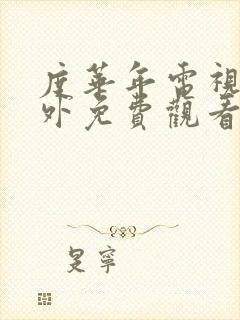 度華年電視
外免費觀看
旻寧